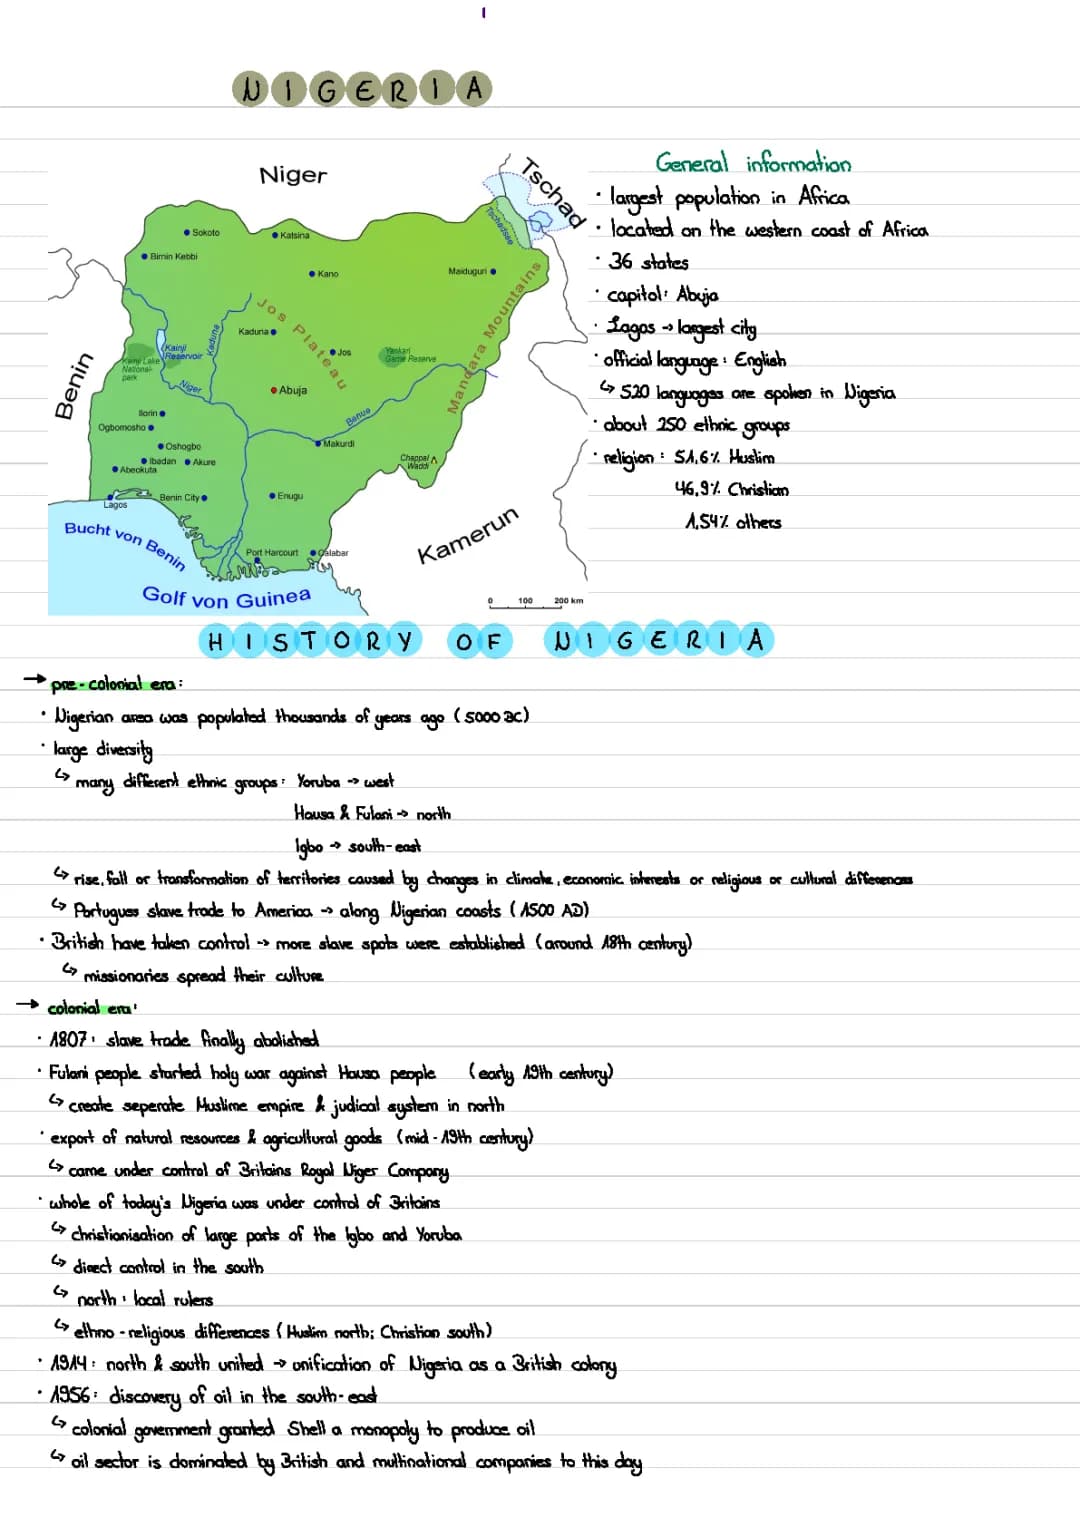 1
NIGERIA
Niger
Tschad
Tschadsee
Sokoto
Katsina
Birnin Kebbi
Kano
Maiduguri
Jos Plateau
Kaduna
Kaduna
Kainji
Reservoir
Kainji Lake
National-
park
Jos
Yankari
Game Reserve
Mandara Mountains
Benin
Niger
Abuja
Benue
Ilorin
Ogbomosho
Oshogbo
Ibadan
Akure
Abeokuta
Makurdi
Chappal
Waddi
Lagos
Benin City
Enugu
Bucht von Benin
Port Harcourt
Calabar
Kamerun
Golf von Guinea
0 100 200 km
General information
· largest population in Africa
· located on the western coast of Africa
· 36 states
· capitol: Abuja
· Lagos → largest city
· official language: English
↳ 520 languages are spoken in Nigeria
· about 250 ethnic groups
· religion: 51,6% Muslim
46,9% Christian
1,54% others
HISTORY OF NIGERIA
→ pre-colonial era:
· Nigerian area was populated thousands of years ago (5000 BC)
· large diversity
↳ many different ethnic groups: Yoruba → west
Hausa & Fulani → north
Igbo → south-east
↳ rise, fall or transformation of territories caused by changes in climate, economic interests or religious or cultural differences
↳ Portugues slave trade to America → along Nigerian coasts (1500 AD)
· British have taken control → more slave spots were established (around 18th century)
↳ missionaries spread their culture
→ colonial era:
· 1807: slave trade finally abolished
· Fulani people started holy war against Hausa people (early 19th century)
↳ create seperate Muslime empire & judical system in north
· export of natural resources & agricultural goods (mid-19th century)
↳ came under control of Britains Royal Niger Company
· whole of today's Nigeria was under control of Britains
↳ christianisation of large parts of the Igbo and Yoruba
↳ direct control in the south
↳ north: local rulers
↳ ethno-religious differences (Muslim north; Christian south)
· 1914: north & south united → unification of Nigeria as a British colony
· 1956: discovery of oil in the south-east
↳ colonial government granted Shell a monopoly to produce oil
↳ oil sector is dominated by British and multinational companies to this day